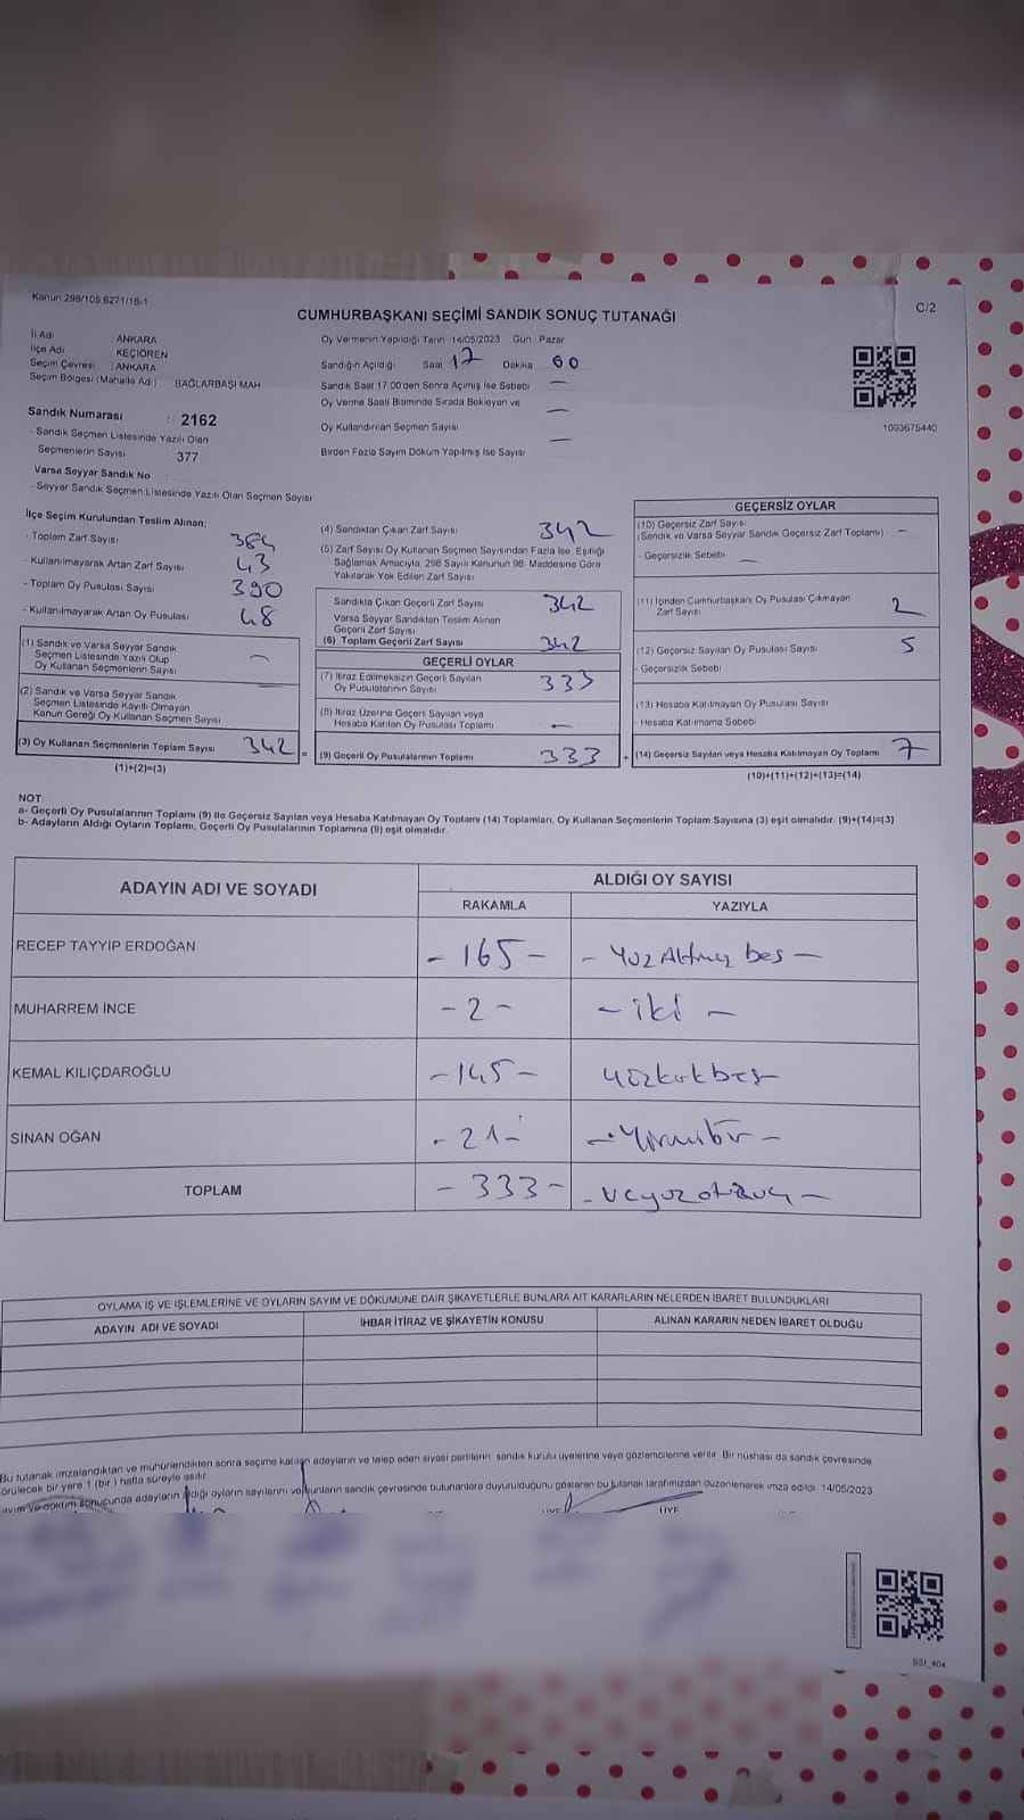 Kanun 298/105,6271/18-1
C/2
CUMHURBAŞKANI SEÇİMİ SANDIK SONUÇ TUTANAĞI
İli Adı ANKARA
İlçe Adı KEÇİÖREN
Seçim Çevresi : ANKARA
Seçim Bölgesi (Mahalle Adı) BAĞLARBAŞI MAH
Sandık Numarası : 2162
- Sandık Seçmen Listesinde Yazılı Olan
Seçmenlerin Sayısı 377
Varsa Seyyar Sandık No
- Seyyar Sandık Seçmen Listesinde Yazılı Olan Seçmen Sayısı
Oy Vermenin Yapıldığı Tarih 14/05/2023 Gün Pazar
Sandığın Açıldığı Saat 17 Dakika
Sandık Saat 17.00'den Sonra Açılmış İse Sebebi —
Oy Verme Saati Bitiminde Sırada Bekleyen ve
Oy Kullandırılan Seçmen Sayısı —
Birden Fazla Sayım Döküm Yapılmış İse Sayısı —
1003675440
İlçe Seçim Kurulundan Teslim Alınan;
- Toplam Zarf Sayısı 384
- Kullanılmayarak Artan Zarf Sayısı 43
- Toplam Oy Pusulası Sayısı 390
- Kullanılmayarak Artan Oy Pusulası 48
(1) Sandık ve Varsa Seyyar Sandık
Seçmen Listesinde Yazılı Olup
Oy Kullanan Seçmenlerin Sayısı —
(2) Sandık ve Varsa Seyyar Sandık
Seçmen Listesinde Kayıtlı Olmayan
Kanun Gereği Oy Kullanan Seçmen Sayısı
(3) Oy Kullanan Seçmenlerin Toplam Sayısı 342
(1)+(2)=(3)
(4) Sandıktan Çıkan Zarf Sayısı 342
(5) Zarf Sayısı Oy Kullanan Seçmen Sayısından Fazla İse, Eşitliği
Sağlamak Amacıyla, 298 Sayılı Kanunun 98. Maddesine Göre
Yakılarak Yok Edilen Zarf Sayısı
Sandıkta Çıkan Geçerli Zarf Sayısı 342
Varsa Seyyar Sandıktan Teslim Alınan
Geçerli Zarf Sayısı
(6) Toplam Geçerli Zarf Sayısı 342
GEÇERLİ OYLAR
(7) İtiraz Edilmeksizin Geçerli Sayılan
Oy Pusulalarının Sayısı 333
(8) İtiraz Üzerine Geçerli Sayılan veya
Hesaba Katılan Oy Pusulası Toplamı —
(9) Geçerli Oy Pusulalarının Toplamı 333
GEÇERSİZ OYLAR
(10) Geçersiz Zarf Sayısı
(Sandık ve Varsa Seyyar Sandık Geçersiz Zarf Toplamı) —
- Geçersizlik Sebebi —
(11) İçinden Cumhurbaşkanı Oy Pusulası Çıkmayan
Zarf Sayısı 2
(12) Geçersiz Sayılan Oy Pusulası Sayısı 5
- Geçersizlik Sebebi
(13) Hesaba Katılmayan Oy Pusulası Sayısı
- Hesaba Katılmama Sebebi
(14) Geçersiz Sayılan veya Hesaba Katılmayan Oy Toplamı 7
(10)+(11)+(12)+(13)=(14)
NOT:
a- Geçerli Oy Pusulalarının Toplamı (9) ile Geçersiz Sayılan veya Hesaba Katılmayan Oy Toplamı (14) Toplamları, Oy Kullanan Seçmenlerin Toplam Sayısına (3) eşit olmalıdır. (9)+(14)=(3)
b- Adayların Aldığı Oyların Toplamı, Geçerli Oy Pusulalarının Toplamına (9) eşit olmalıdır.
ADAYIN ADI VE SOYADI
ALDIĞI OY SAYISI
RAKAMLA YAZIYLA
RECEP TAYYİP ERDOĞAN - 165 - - Yüz Altmış beş -
MUHARREM İNCE - 2 - - iki -
KEMAL KILIÇDAROĞLU - 145 - yüzkırkbeş
SİNAN OĞAN - 21 - - Yirmibir -
TOPLAM - 333 - - üçyüzotuzüç -
OYLAMA İŞ VE İŞLEMLERİNE VE OYLARIN SAYIM VE DÖKÜMÜNE DAİR ŞİKAYETLERLE BUNLARA AİT KARARLARIN NELERDEN İBARET BULUNDUKLARI
ADAYIN ADI VE SOYADI İHBAR İTİRAZ VE ŞİKAYETİN KONUSU ALINAN KARARIN NEDEN İBARET OLDUĞU
Bu tutanak imzalandıktan ve mühürlendikten sonra seçime katılan adayların ve talep eden siyasi partilerin sandık kurulu üyelerine veya gözlemcilerine verilir. Bir nüshası da sandık çevresinde
görülecek bir yere 1 (bir) hafta süreyle asılır.
Sayım ve döküm sonucunda adayların aldığı oyların sayılarını ve bunların sandık çevresinde bulunanlara duyurulduğunu gösteren bu tutanak tarafımızdan düzenlenerek imza edildi. 14/05/2023
ÜYE ÜYE